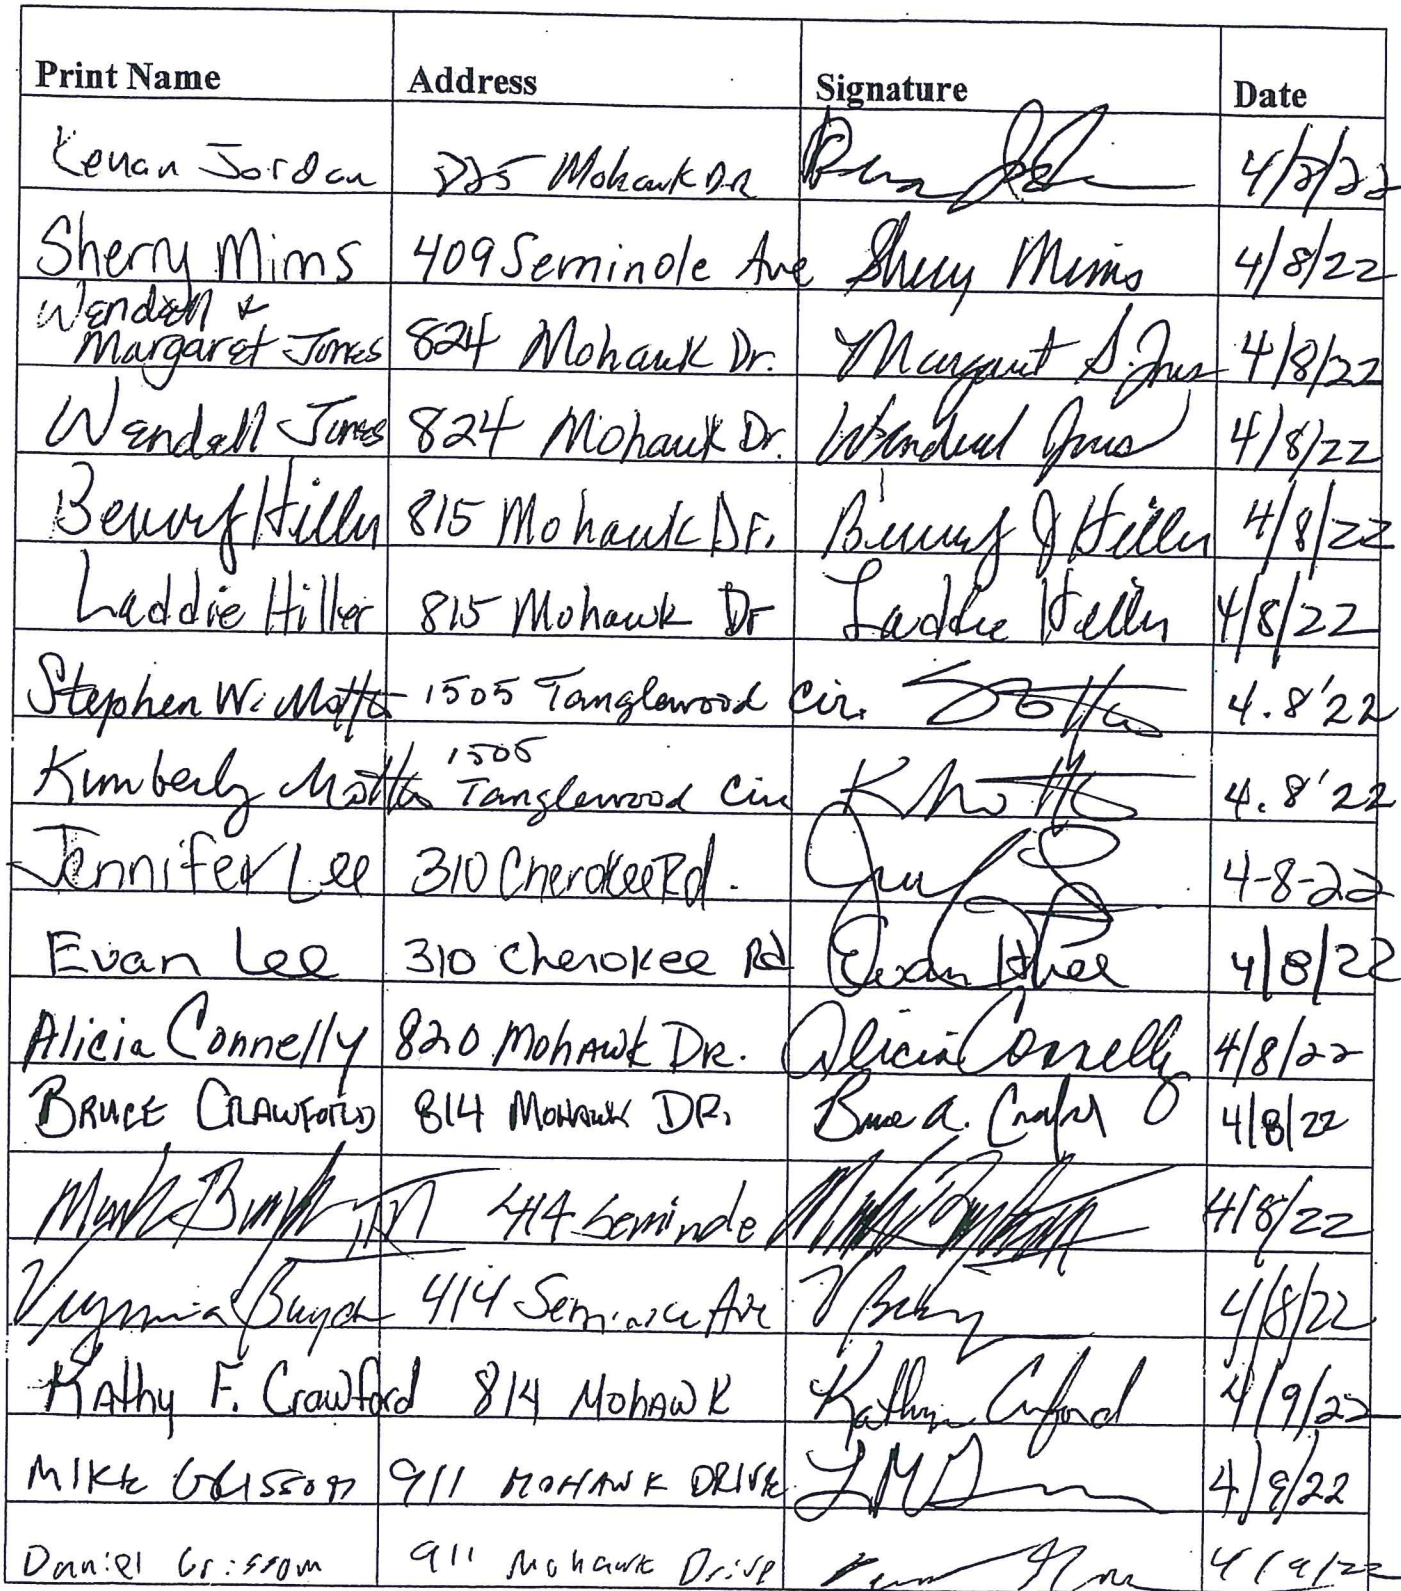 Print Name Address Signature Date
Kenan Jordan Mohawk DR 4/8/22
Sherry Mims 409 Seminole Ave Sherry Mims 4/8/22
Wendell &
Margaret Jones 824 Mohawk Dr. Margaret S. Jones 4/8/22
Wendell Jones 824 Mohawk Dr. Wendell Jones 4/8/22
Hiller 815 Mohawk Dr. J Hiller 4/8/22
Laddie Hiller 815 Mohawk Dr Laddie Hiller 4/8/22
Stephen W. Motta 1505 Tanglewood Cir. 4.8'22
1505
Kimberly Motta Tanglewood Cir K Motta 4.8'22
Jennifer Lee 310 Cherokee Rd. 4-8-22
Evan Lee 310 Cherokee Rd Evan Lee 4/8/22
Alicia Connelly 820 Mohawk DR. Alicia Connelly 4/8/22
BRUCE CRAWFORD 814 MOHAWK DR. Bruce A. Crawford 4/8/22
Mark 414 Seminole 4/8/22
Virginia 414 Seminole Ave 4/8/22
Kathy F. Crawford 814 Mohawk Crawford 4/9/22
MIKE GRISSOM 911 MOHAWK DRIVE 4/9/22
Daniel Grissom 911 Mohawk Drive 4/9/22